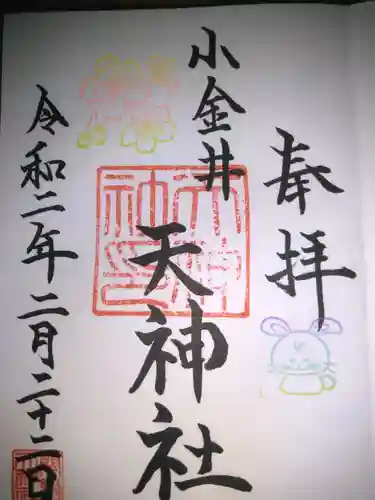 奉拝
小金井
天神社
令和二年二月二十二日